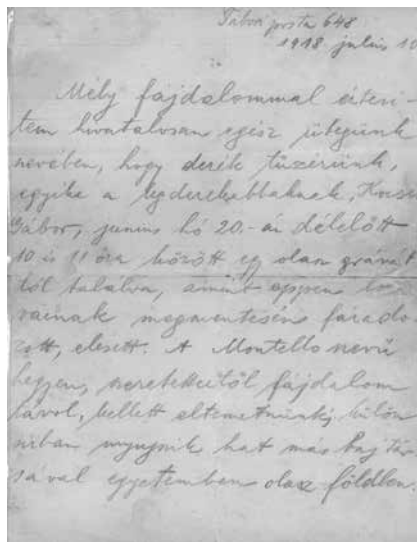 Tábori posta 648.
1918 julius 10
Mély fájdalommal értesi-
tem hivatalosan egész ütegünk
nevében, hogy derék tüzérünk,
egyike a legderekabbaknak,
Gábor, junius hó 20.-án délelőtt
10 és 11 óra között egy olasz gránát-
tól találva, amint éppen
megmentésén fárado-
zott, elesett. A Montello nevű
hegyen, szeretteitől fájdalom
távol, kellett eltemetnünk, külön
sirban nyugszik hat más bajtár-
sával egyetemben olasz földben.